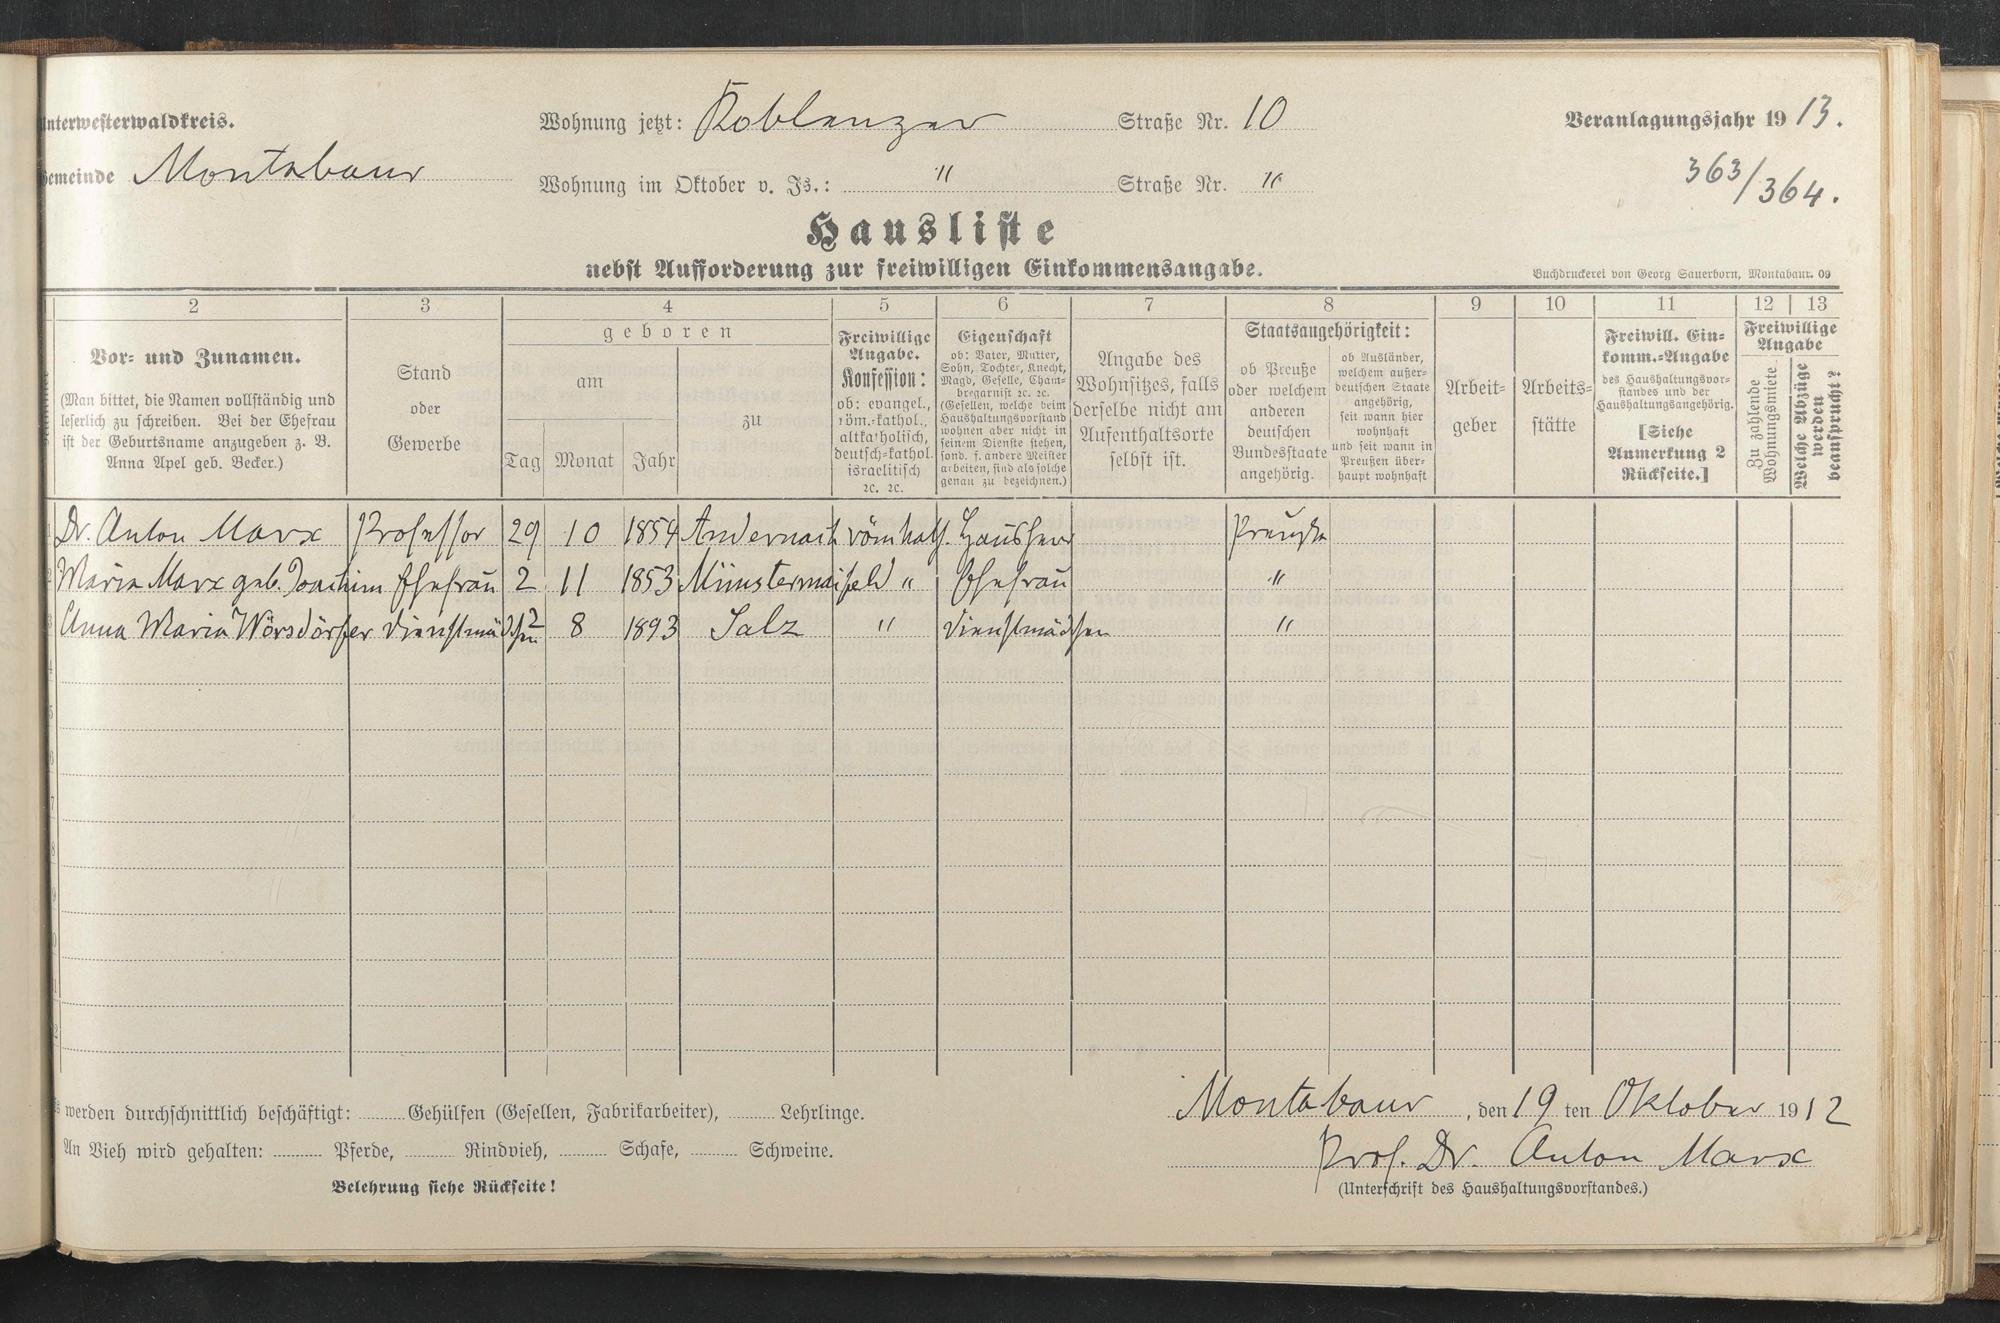 Unterwesterwaldkreis.
Wohnung jetzt: Koblenzer Straße Nr. 10
Veranlagungsjahr 1913.
Gemeinde Montabaur
Wohnung im Oktober v. Js.: " Straße Nr. "
363/364.
Hausliste
nebst Aufforderung zur freiwilligen Einkommensangabe.
Buchdruckerei von Georg Sauerborn, Montabaur. 09
2 3 4 5 6 7 8 9 10 11 12 13
Vor- und Zunamen.
(Man bittet, die Namen vollständig und
leserlich zu schreiben. Bei der Ehefrau
ist der Geburtsname anzugeben z. B.
Anna Apel geb. Becker.)
Stand
oder
Gewerbe
geboren
am
zu
Tag Monat Jahr
Freiwillige
Angabe.
Konfession:
ob: evangel.,
röm.-kathol.,
altkatholisch,
deutsch-kathol.
israelitisch
ꝛc. ꝛc.
Eigenschaft
ob: Vater, Mutter,
Sohn, Tochter, Knecht,
Magd, Geselle, Cham-
bregarnist ꝛc. ꝛc.
(Gesellen, welche beim
Haushaltungsvorstand
wohnen aber nicht in
seinem Dienste stehen,
sond. f. andere Meister
arbeiten, sind als solche
genau zu bezeichnen.)
Angabe des
Wohnsitzes, falls
derselbe nicht am
Aufenthaltsorte
selbst ist.
Staatsangehörigkeit:
ob Preuße
oder welchem
anderen
deutschen
Bundesstaate
angehörig.
ob Ausländer,
welchem außer-
deutschen Staate
angehörig,
seit wann hier
wohnhaft
und seit wann in
Preußen über-
haupt wohnhaft
Arbeit-
geber
Arbeits-
stätte
Freiwill. Ein-
komm.-Angabe
des Haushaltungsvor-
standes und der
Haushaltungsangehörig.
[Siehe
Anmerkung 2
Rückseite.]
Freiwillige
Angabe
Zu zahlende
Wohnungsmiete
Welche Abzüge
werden
beansprucht?
1 Dr. Anton Marx Professor 29 10 1854 Andernach römkath. Hausherr Preuße
2 Maria Marx geb. Joachim Ehefrau 2 11 1853 Münstermaifeld " Ehefrau "
3 Anna Maria Wörsdörfer Dienstmädchen 2 8 1893 Salz " Dienstmädchen "
4
5
6
7
8
9
0
1
2
werden durchschnittlich beschäftigt: Gehülfen (Gesellen, Fabrikarbeiter), Lehrlinge.
An Vieh wird gehalten: Pferde, Rindvieh, Schafe, Schweine.
Belehrung siehe Rückseite!
Montabaur, den 19 ten Oktober 1912
Prof. Dr. Anton Marx
(Unterschrift des Haushaltungsvorstandes.)